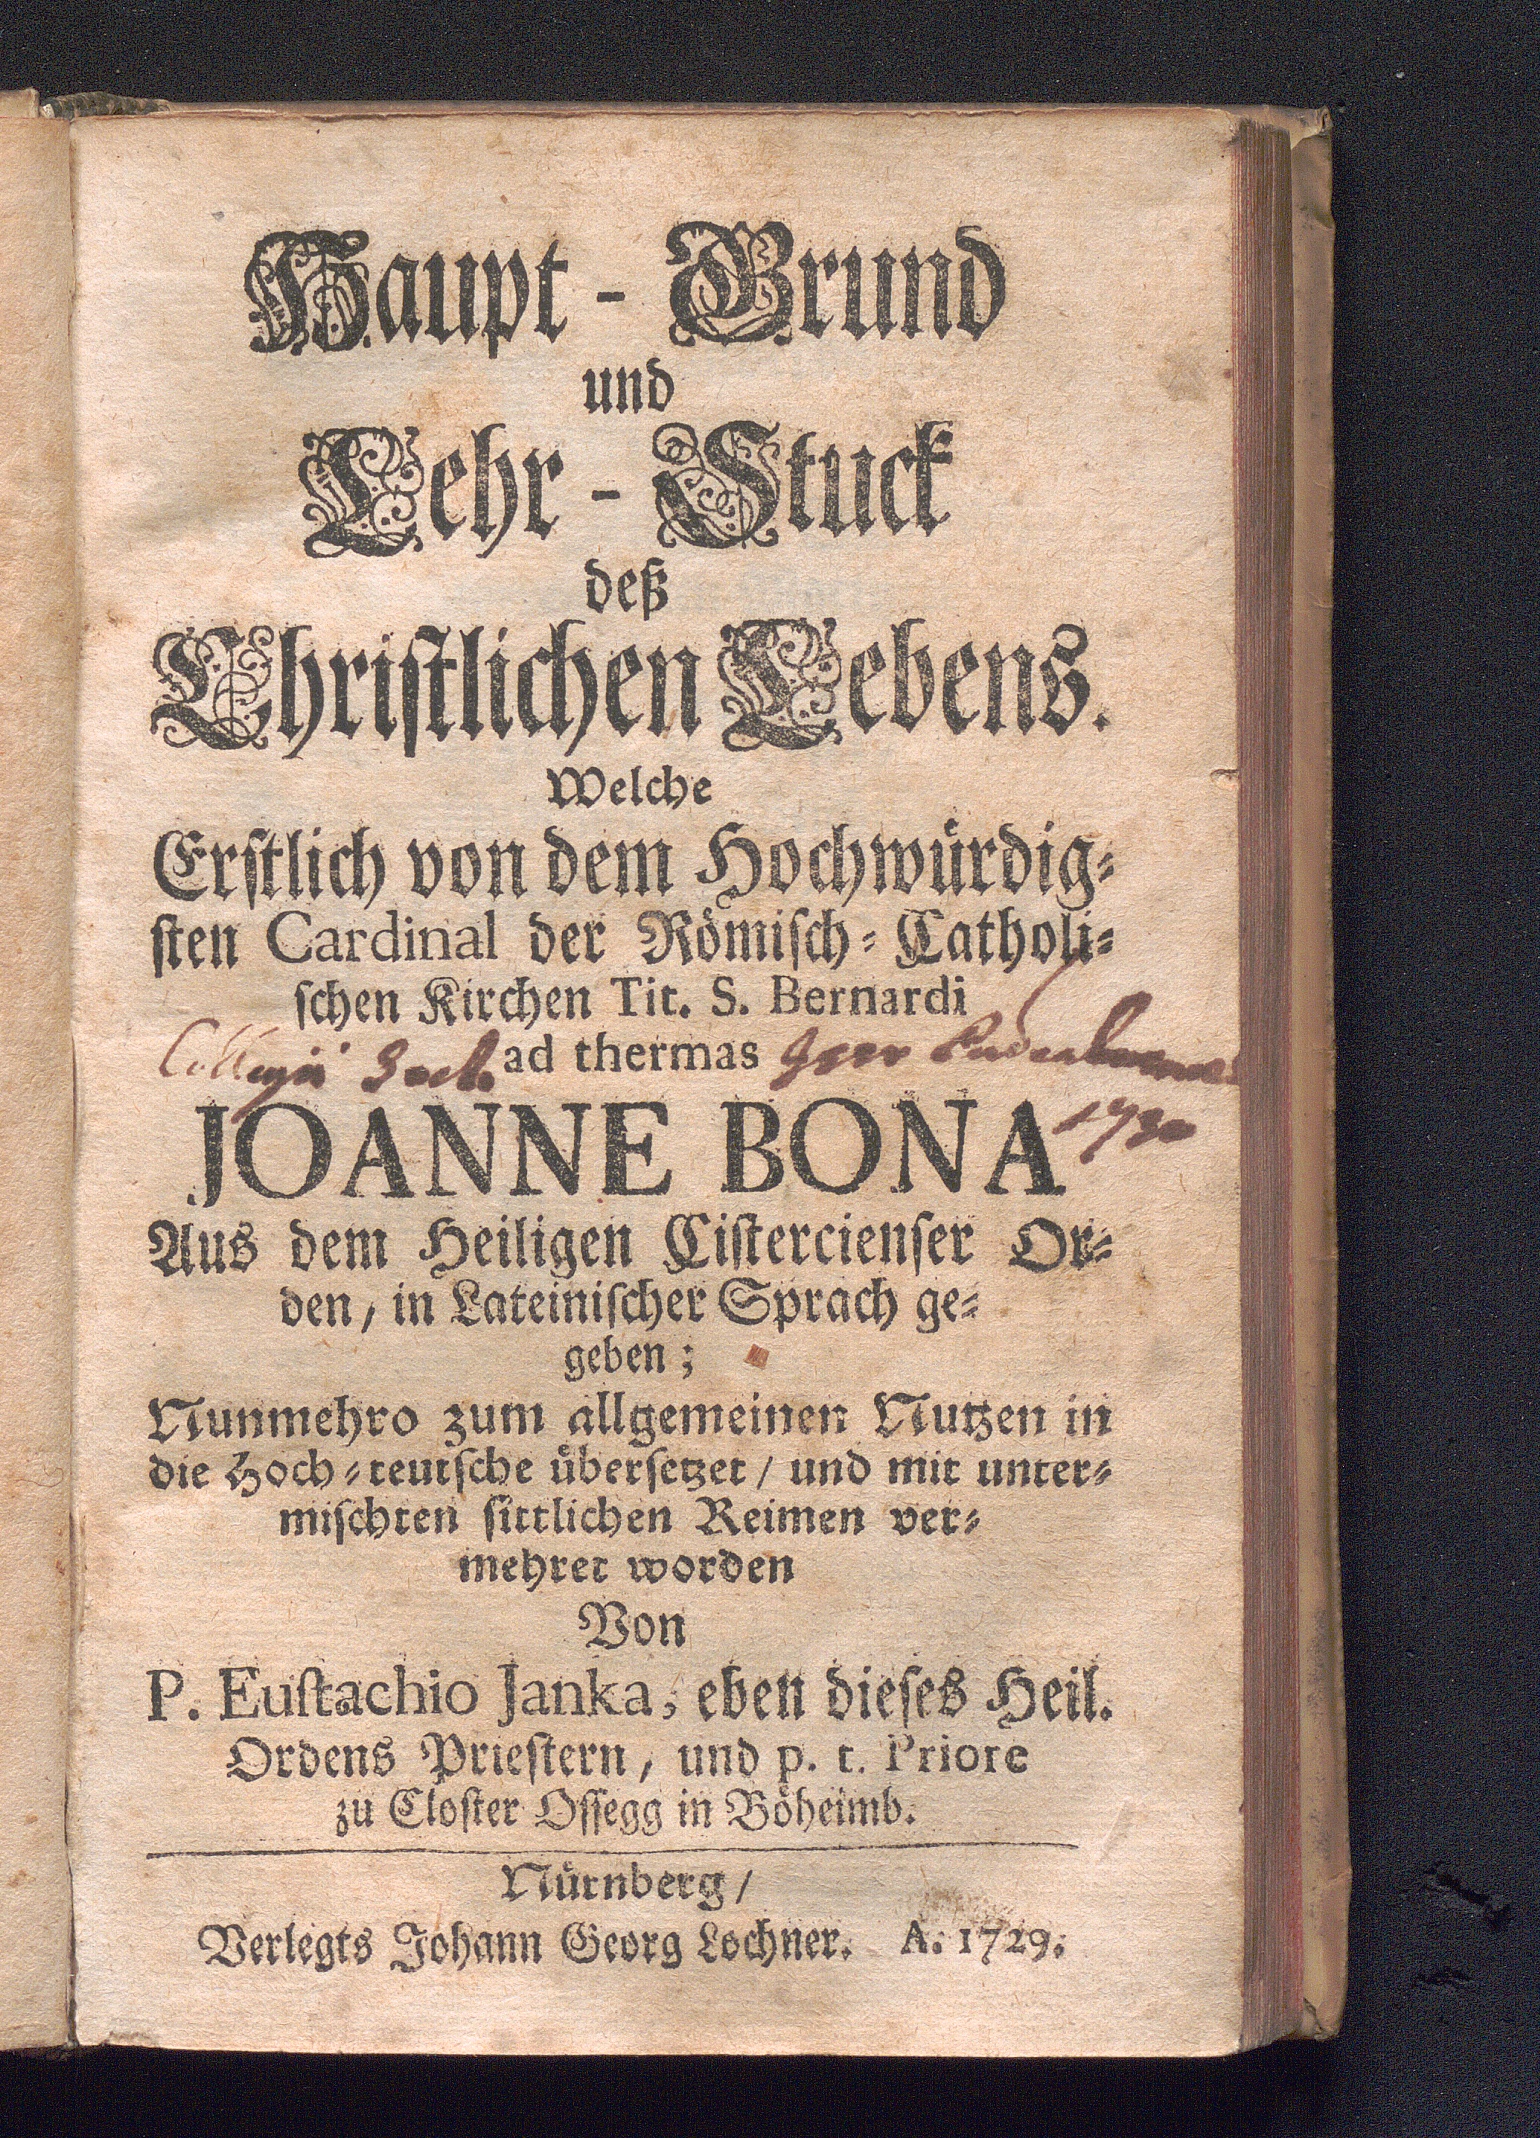 Haupt-Grund
und
Lehr-Stuck
deß
Christlichen Lebens.
Welche
Erstlich von dem Hochwürdig-
sten Cardinal der Römisch-Catholi-
schen Kirchen Tit. S. Bernardi
ad thermas
JOANNE BONA
1730
Aus dem Heiligen Cistercienser Or-
den, in Lateinischer Sprach ge-
geben;
Nunmehro zum allgemeinen Nutzen in
die Hoch-teutsche übersetzet / und mit unter-
mischten sittlichen Reimen ver-
mehret worden
Von
P. Eustachio Janka, eben dieses Heil.
Ordens Priestern, und p. t. Priore
zu Closter Ossegg in Böheimb.
Nürnberg /
Verlegts Johann Georg Lochner. A. 1729.